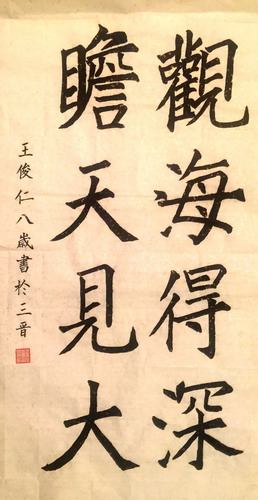 觀海得深
瞻天見大
王俊仁八歲書於三晉